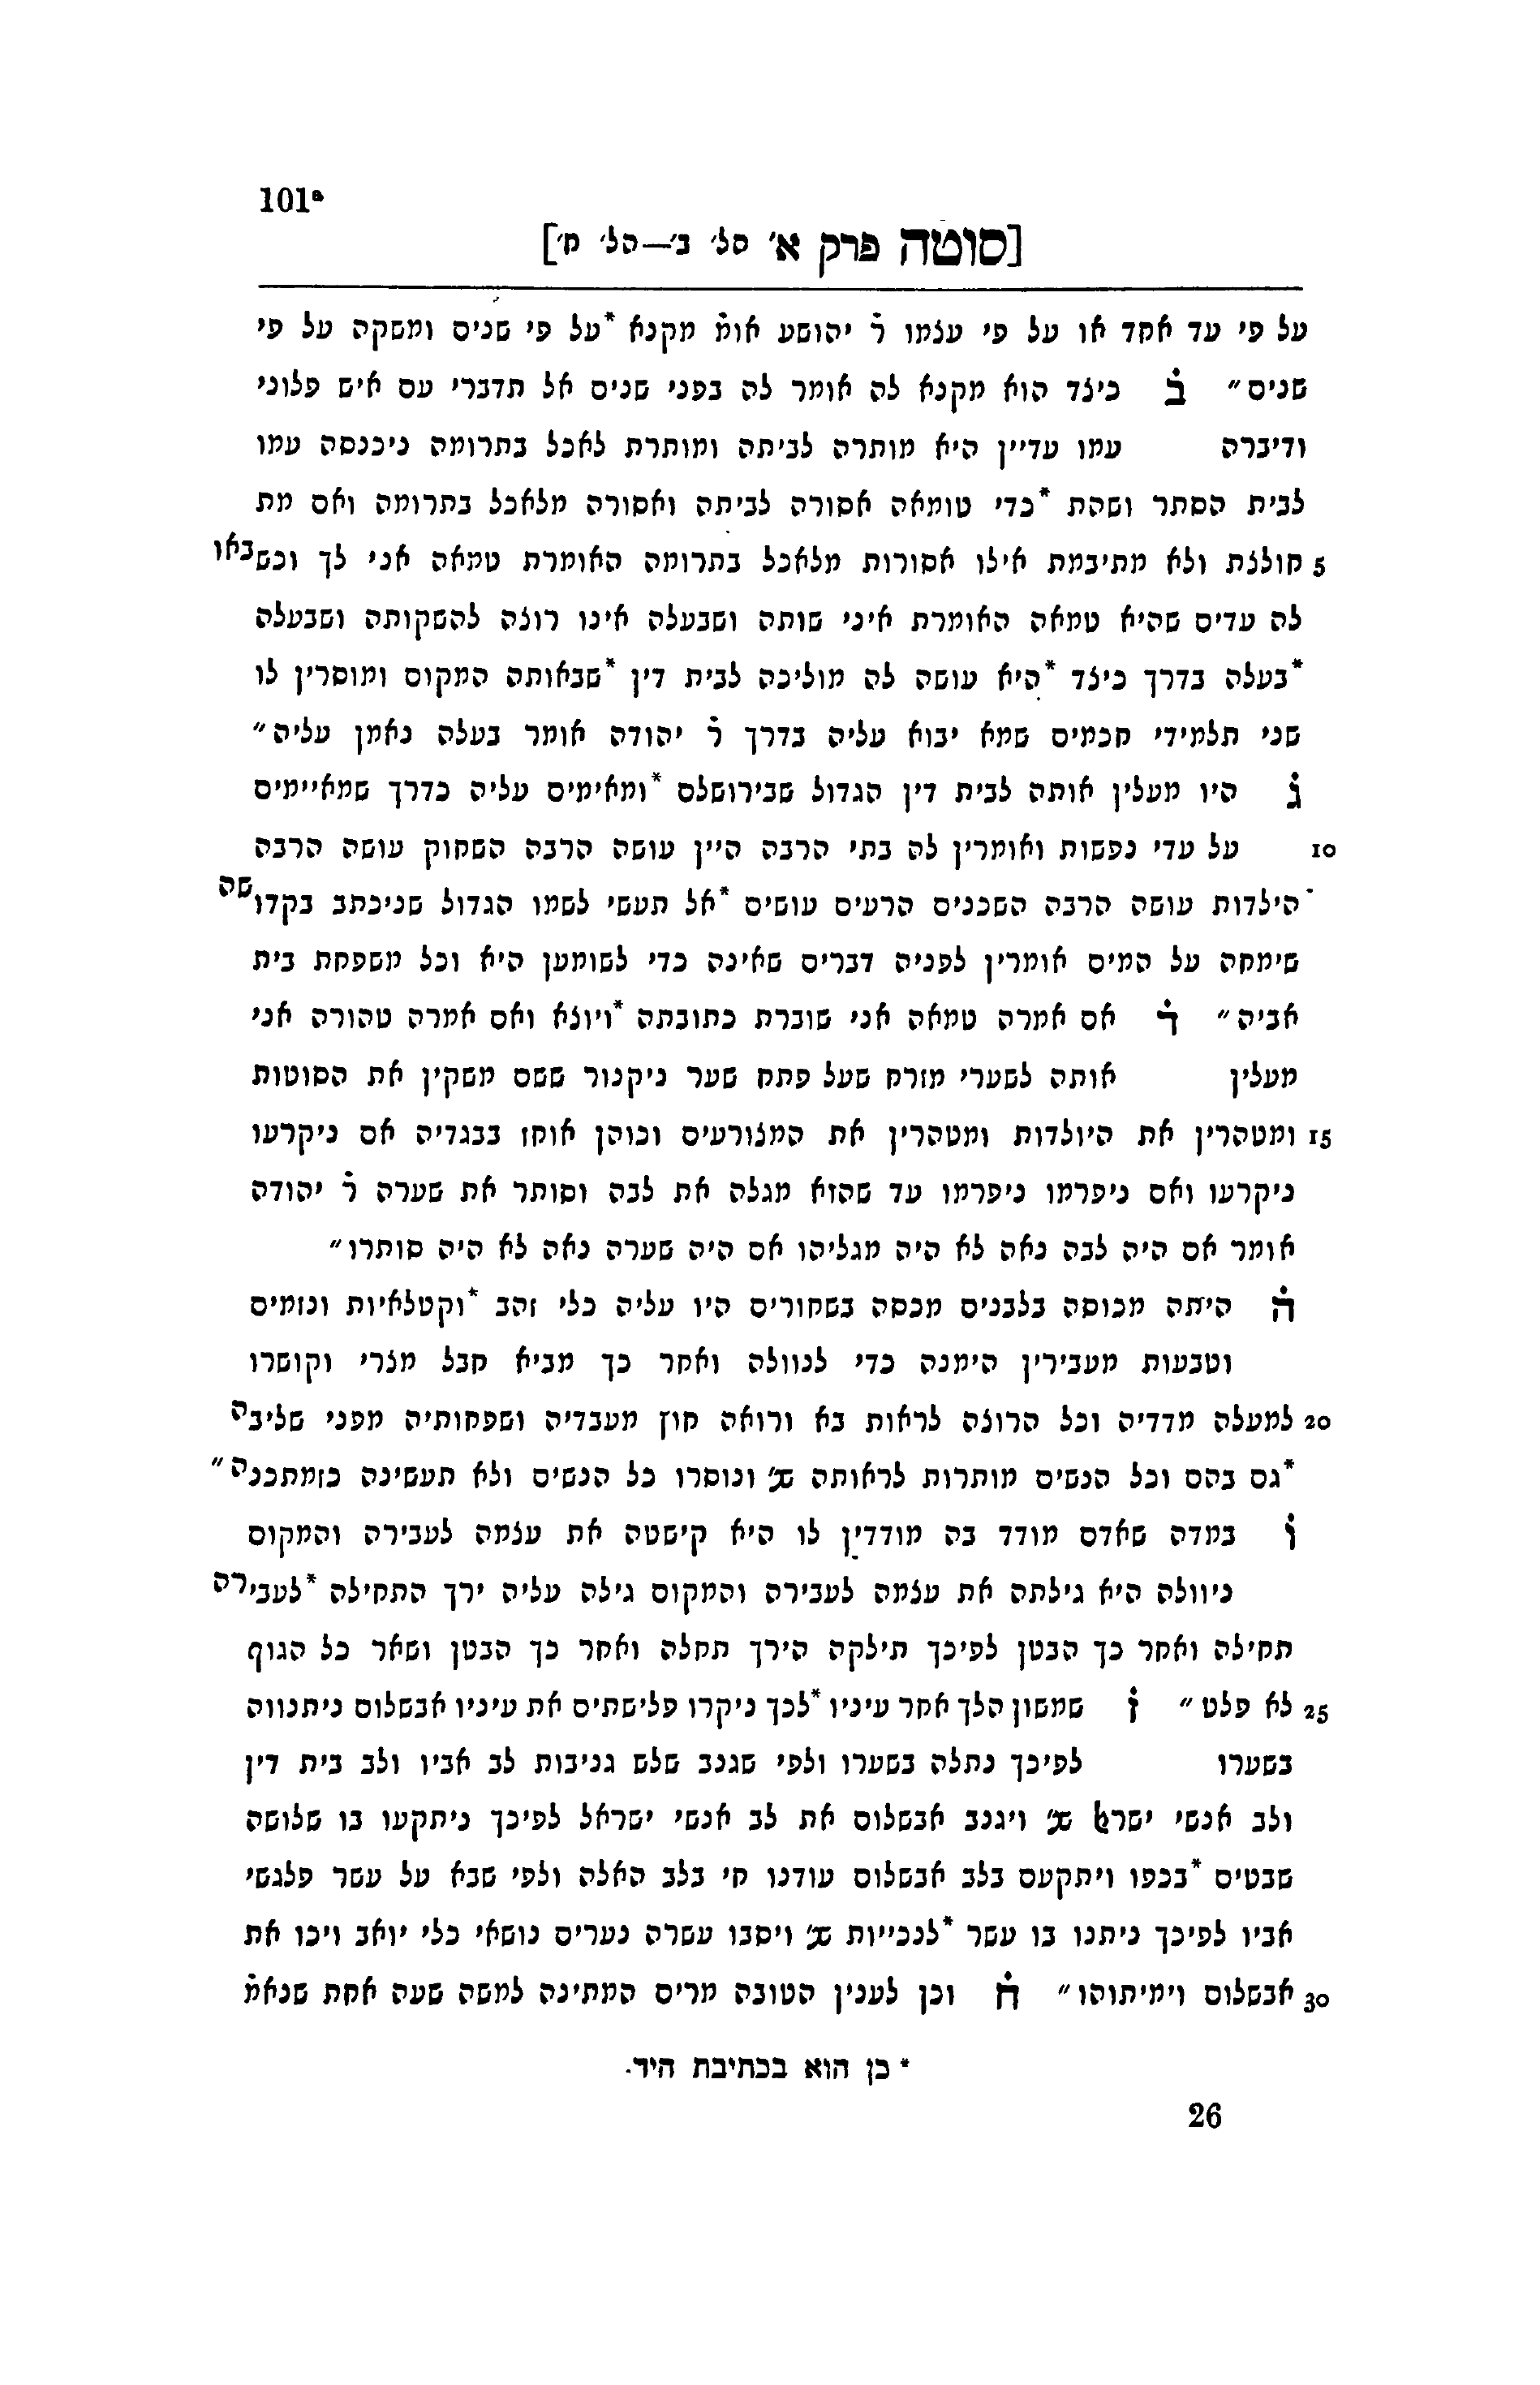 101ª
[סוטה פרק א׳ הל׳ ב׳—הל׳ ח׳]
על פי עד אחד או על פי עצמו ר̇ יהושע אומ̇ מקנא *על פי שנים ומשקה על פי
שנים״ ב̇ כיצד הוא מקנא לה אומר לה בפני שנים אל תדברי עם איש פלוני
ודיברה עמו עדיין היא מותרה לביתה ומותרת לאכל בתרומה ניכנסה עמו
לבית הסתר ושהת *כדי טומאה אסורה לביתה ואסורה מלאכל בתרומה ואם מת
5 חולצת ולא מתיבמת אילו אסורות מלאכל בתרומה האומרת טמאה אני לך וכשבאו
לה עדים שהיא טמאה האומרת איני שותה ושבעלה אינו רוצה להשקותה ושבעלה
*בעלה בדרך כיצד *היא עושה לה מוליכה לבית דין *שבאותה המקום ומוסרין לו
שני תלמידי חכמים שמא יבוא עליה בדרך ר̇ יהודה אומר בעלה נאמן עליה״
ג̇ היו מעלין אותה לבית דין הגדול שבירושלם *ומאימים עליה כדרך שמאיימים
10 על עדי נפשות ואומרין לה בתי הרבה היין עושה הרבה השחוק עושה הרבה
הילדות עושה הרבה השכנים הרעים עושים *אל תעשי לשמו הגדול שניכתב בקדושה
שימחה על המים אומרין לפניה דברים שאינה כדי לשומען היא וכל משפחת בית
אביה״ ד̇ אם אמרה טמאה אני שוברת כתובתה *ויוצא ואם אמרה טהורה אני
מעלין אותה לשערי מזרח שעל פתח שער ניקנור ששם משקין את הסוטות
15 ומטהרין את היולדות ומטהרין את המצורעים וכוהן אוחז בבגדיה אם ניקרעו
ניקרעו ואם ניפרמו ניפרמו עד שהוא מגלה את לבה וסותר את שערה ר̇ יהודה
אומר אם היה לבה נאה לא היה מגליהו אם היה שערה נאה לא היה סותרו״
ה̇ היתה מכוסה בלבנים מכסה בשחורים היו עליה כלי זהב *וקטלאיות ונזמים
וטבעות מעבירין הימנה כדי לנוולה ואחר כך מביא חבל מצרי וקושרו
20 למעלה מדדיה וכל הרוצה לראות בא ורואה חוץ מעבדיה ושפחותיה מפני שליבה
*גס בהם וכל הנשים מותרות לראותה שנ׳ ונוסרו כל הנשים ולא תעשינה כזמתכנה״
ו̇ במדה שאדם מודד בה מודדין לו היא קישטה את עצמה לעבירה והמקום
ניוולה היא גילתה את עצמה לעבירה והמקום גילה עליה ירך התחילה *לעבירה
תחילה ואחר כך הבטן לפיכך תילקה הירך תחלה ואחר כך הבטן ושאר כל הגוף
25 לא פלט״ ז̇ שמשון הלך אחר עיניו *לכך ניקרו פלישתים את עיניו אבשלום ניתנווה
בשערו לפיכך נתלה בשערו ולפי שגנב שלש גניבות לב אביו ולב בית דין
ולב אנשי ישראל שנ׳ ויגנב אבשלום את לב אנשי ישראל לפיכך ניתקעו בו שלושה
שבטים *בכפו ויתקעם בלב אבשלום עודנו חי בלב האלה ולפי שבא על עשר פלגשי
אביו לפיכך ניתנו בו עשר *לנכייות שנ׳ ויסבו עשרה נערים נושאי כלי יואב ויכו את
30 אבשלום וימיתוהו״ ח̇ וכן לענין הטובה מרים המתינה למשה שעה אחת שנאמ̇
* כן הוא בכתיבת היד.
26